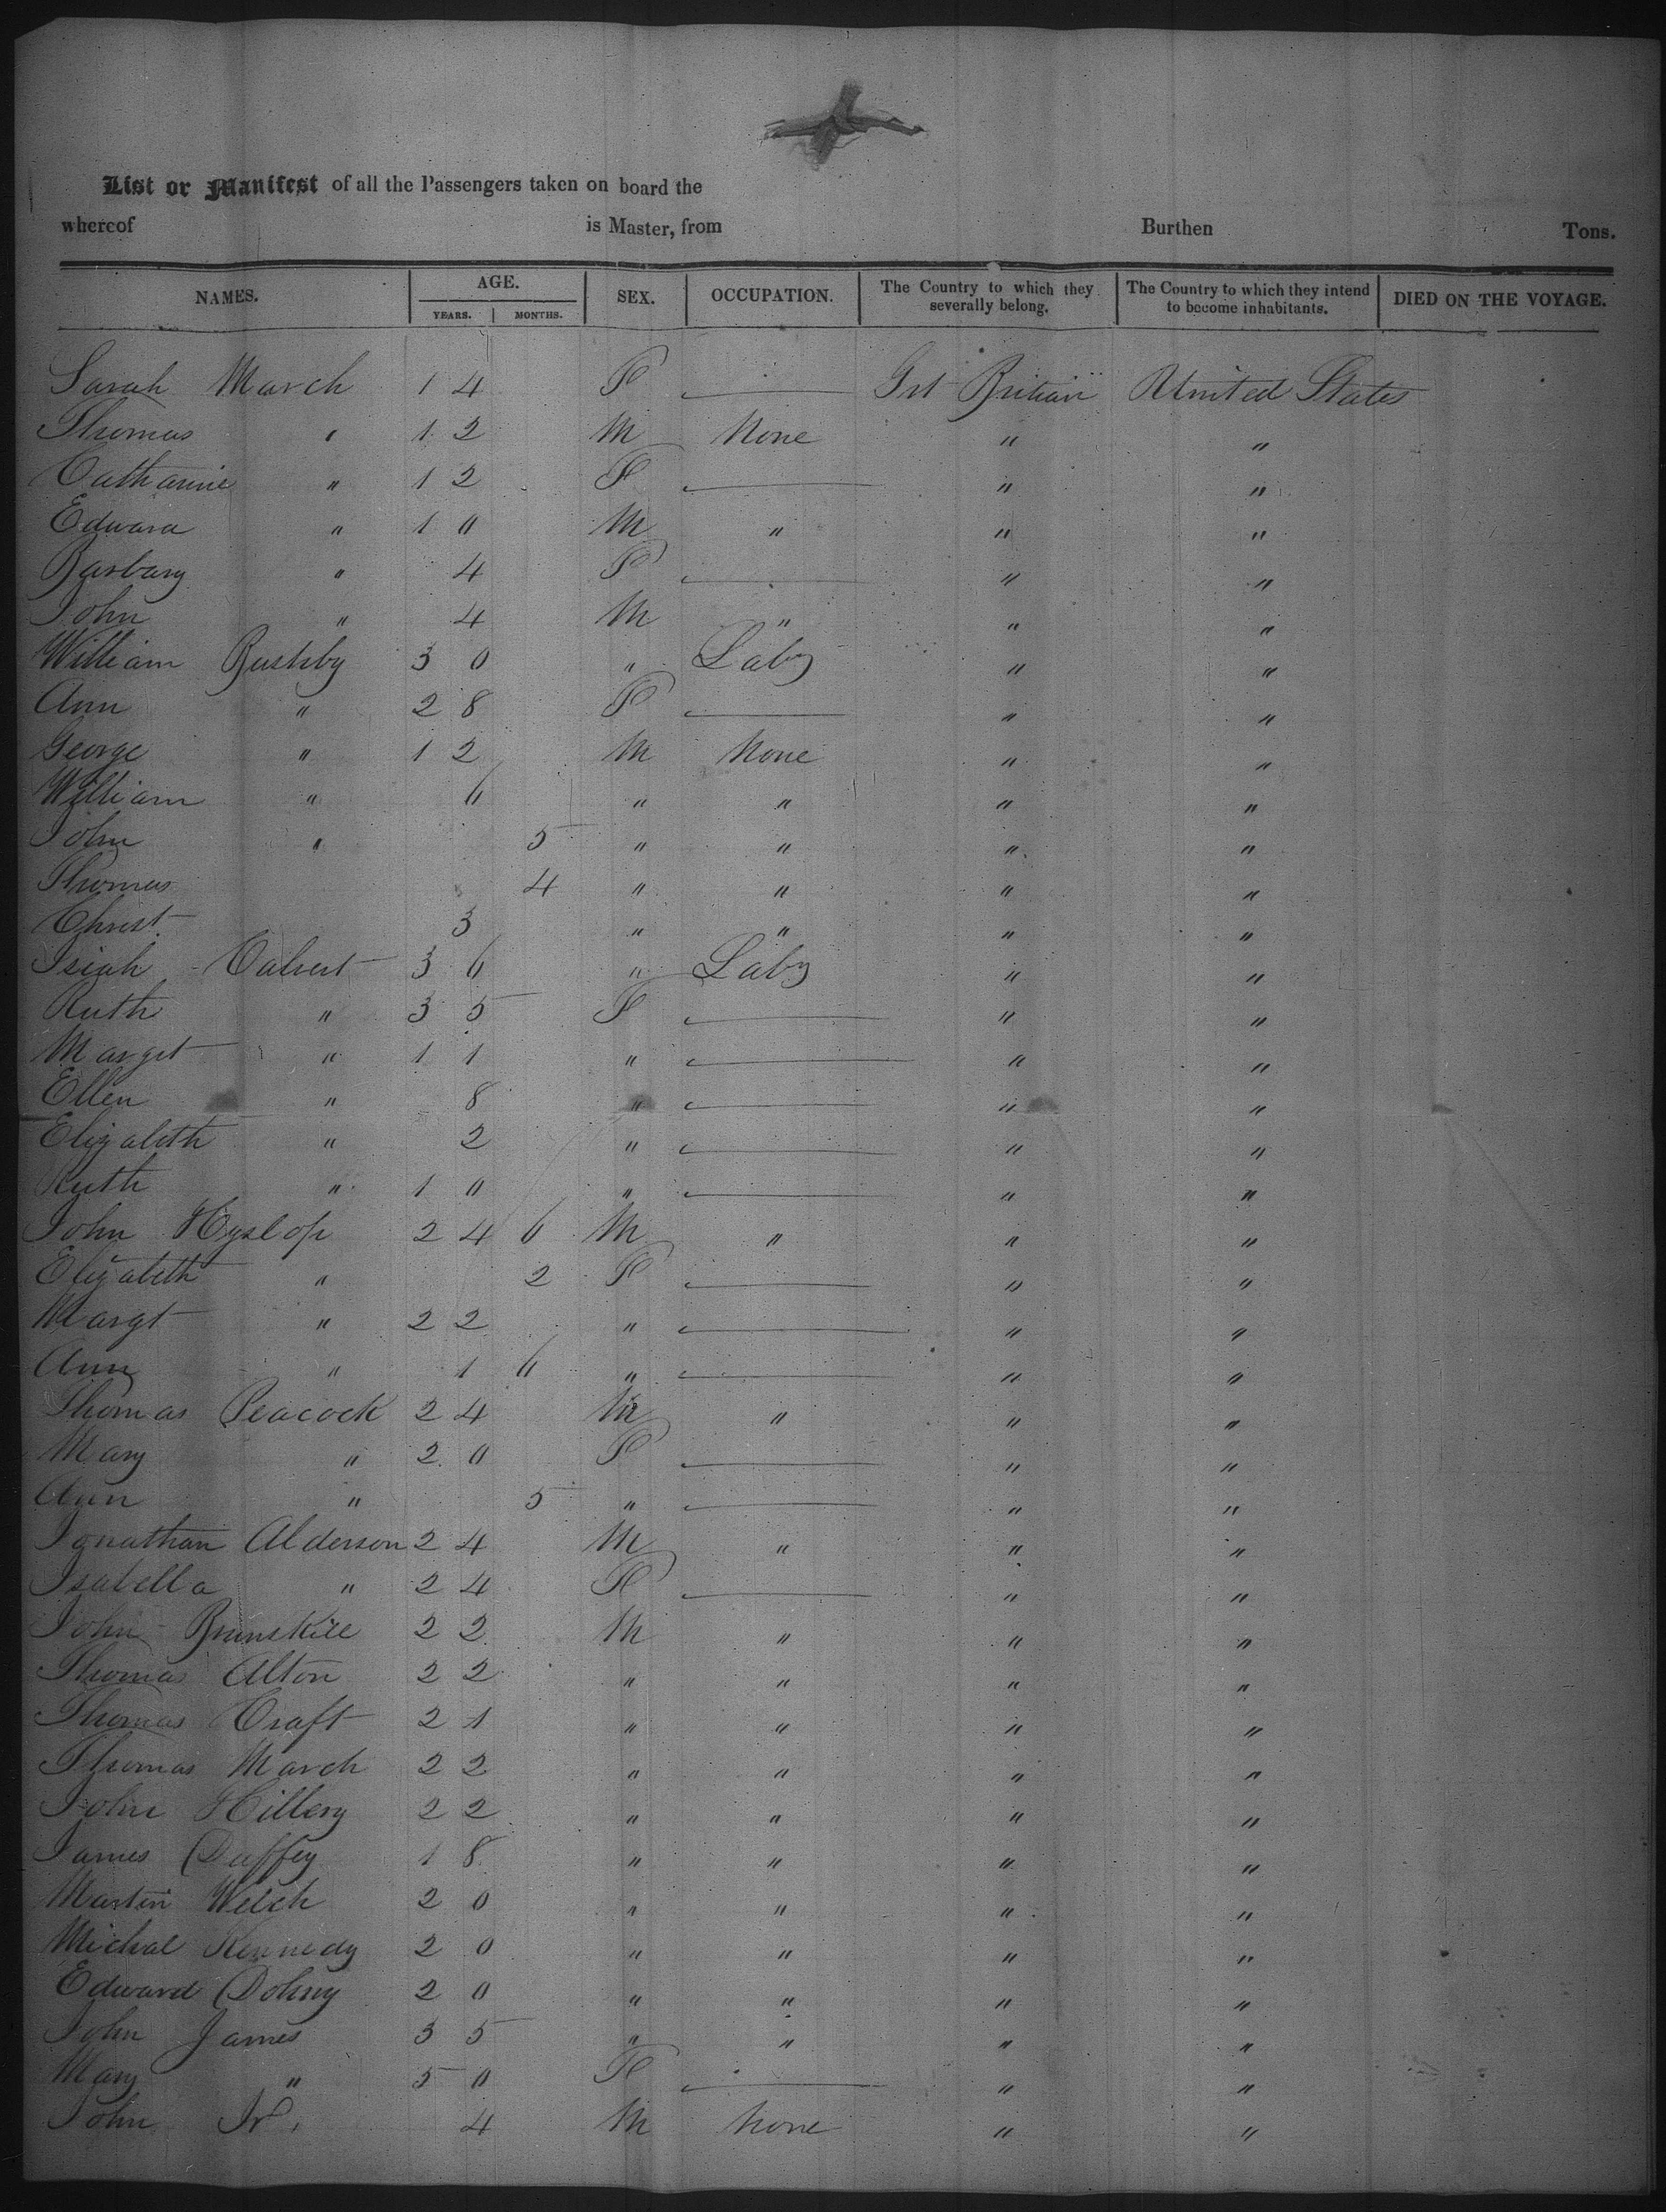 List or Manifest of all the Passengers taken on board the
whereof is Master, from Burthen Tons.
NAMES. AGE. YEARS. MONTHS. SEX. OCCUPATION. The Country to which they severally belong. The Country to which they intend to become inhabitants. DIED ON THE VOYAGE.
Sarah March 14 F — Grt Britian United States
Thomas " 12 M None " "
Catharine " 12 F — " "
Edward " 10 M " " "
Barbary " 4 F — " "
John " 4 M " " "
William Bushby 30 " Labr " "
Ann " 28 F — " "
George " 12 M None " "
William " 6 " " " "
John " 5 " " " "
Thomas 4 " " " "
Christ. 3 " " " "
Isiah Calvert 36 " Labr " "
Ruth " 35 F — " "
Marget " 11 " — " "
Ellen " 8 " — " "
Elizabeth " 2 " — " "
Ruth " 10 " — " "
John Hyslop 24 6 M " " "
Elizabeth " 2 F — " "
Margt " 22 " — " "
Ann " 1 6 " — " "
Thomas Peacock 24 M " " "
Mary " 20 F — " "
Ann " 5 " — " "
Jonathan Alderson 24 M " " "
Isabella " 24 F — " "
John Brunskill 22 M " " "
Thomas Alton 22 " " " "
Thomas Craft 21 " " " "
Thomas March 22 " " " "
John Hillery 22 " " " "
James Duffey 18 " " " "
Martin Welch 20 " " " "
Michal Kennedy 20 " " " "
Edward Dohny 20 " " " "
John James 35 " " " "
Mary " 50 F — " "
John Jr. 4 M None " "